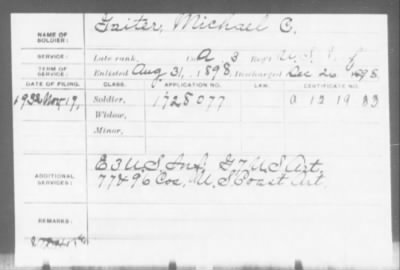 NAME OF SOLDIER: Gaiter, Michael C.
SERVICE: Late rank, Co. A, 3 Reg't U.S. Inf
TERM OF SERVICE: Enlisted Aug 31, 1898, Discharged Dec 20 1898.
DATE OF FILING. CLASS. APPLICATION NO. LAW. CERTIFICATE NO.
1932 Nov. 17, Soldier, 1728077
Widow,
Minor,
ADDITIONAL SERVICES: E 3 U.S. Inf. G 7 U.S. Art.
77 & 96 Cos, U.S. Coast Art.
REMARKS: